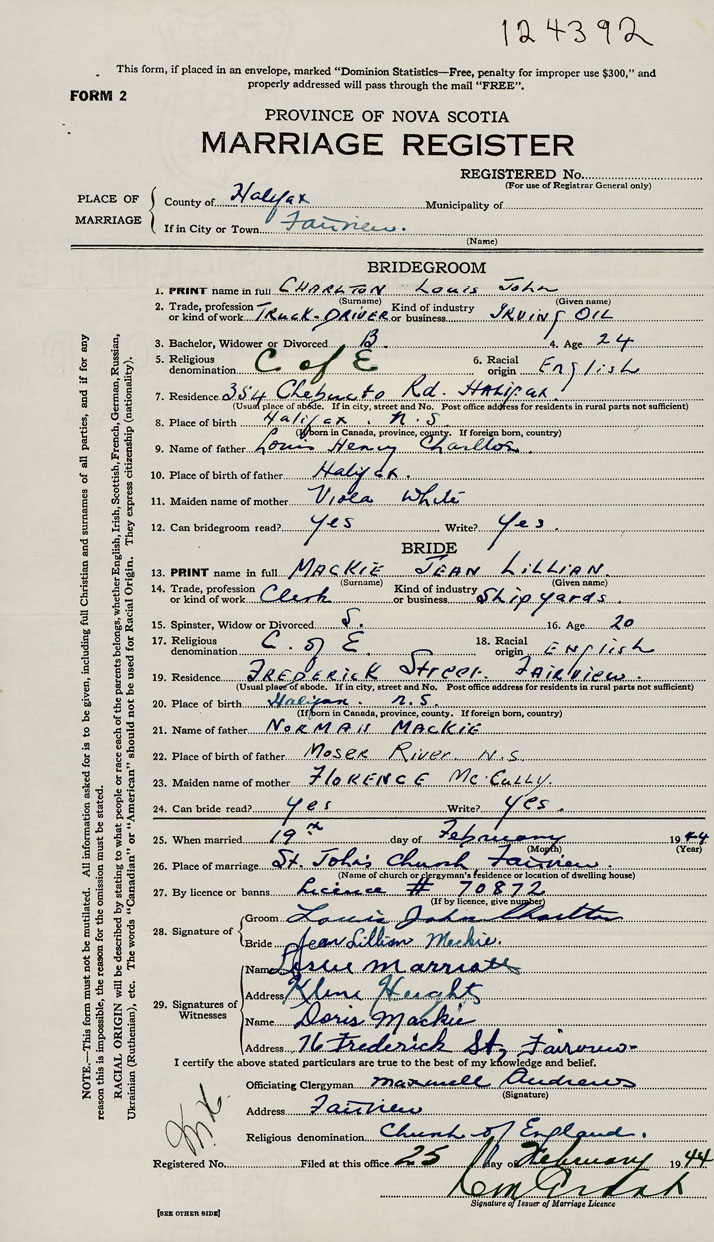 124392
This form, if placed in an envelope, marked “Dominion Statistics—Free, penalty for improper use $300,” and
properly addressed will pass through the mail “FREE”.
FORM 2
PROVINCE OF NOVA SCOTIA
MARRIAGE REGISTER
REGISTERED No.
(For use of Registrar General only)
PLACE OF MARRIAGE
County of Halifax Municipality of
If in City or Town Fairview.
(Name)
BRIDEGROOM
1. PRINT name in full CHARLTON Louis John
(Surname) (Given name)
2. Trade, profession or kind of work TRUCK-DRIVER Kind of industry or business IRVING OIL
3. Bachelor, Widower or Divorced B. 4. Age 24
5. Religious denomination C of E 6. Racial origin English
7. Residence 354 Chebucto Rd. HALIFAX.
(Usual place of abode. If in city, street and No. Post office address for residents in rural parts not sufficient)
8. Place of birth Halifax. N.S.
(If born in Canada, province, county. If foreign born, country)
9. Name of father Louis Henry Charlton.
10. Place of birth of father Halifax.
11. Maiden name of mother Viola White
12. Can bridegroom read? yes Write? yes.
BRIDE
13. PRINT name in full MACKIE JEAN LILLIAN.
(Surname) (Given name)
14. Trade, profession or kind of work Clerk Kind of industry or business Shipyards.
15. Spinster, Widow or Divorced S. 16. Age 20
17. Religious denomination C. of E. 18. Racial origin ENglish
19. Residence FREDERICK Street. FAIRVIEW.
(Usual place of abode. If in city, street and No. Post office address for residents in rural parts not sufficient)
20. Place of birth Halifax. N.S.
(If born in Canada, province, county. If foreign born, country)
21. Name of father NORMAN MACKIE
22. Place of birth of father MOSER RIVER. N.S.
23. Maiden name of mother FLORENCE Mc.Cully.
24. Can bride read? yes Write? yes.
25. When married 19th day of February 1944
(Month) (Year)
26. Place of marriage St. John's Church Fairview.
(Name of church or clergyman's residence or location of dwelling house)
27. By licence or banns Licence # 70872
(If by licence, give number)
28. Signature of
Groom Louis John Charlton
Bride Jean Lillian Mackie.
29. Signatures of Witnesses
Name Leslie Marriott
Address Kline Heights
Name Doris Mackie
Address 76 Frederick St, Fairview
I certify the above stated particulars are true to the best of my knowledge and belief.
Officiating Clergyman Maxwell Andrews
(Signature)
Address Fairview
Religious denomination Church of England.
Registered No. Filed at this office 25 day of February 1944
Signature of Issuer of Marriage Licence
[SEE OTHER SIDE]
NOTE.—This form must not be mutilated. All information asked for is to be given, including full Christian and surnames of all parties, and if for any
reason this is impossible, the reason for the omission must be stated.
RACIAL ORIGIN will be described by stating to what people or race each of the parents belongs, whether English, Irish, Scottish, French, German, Russian,
Ukrainian (Ruthenian), etc. The words “Canadian” or “American” should not be used for Racial Origin. They express citizenship (nationality).